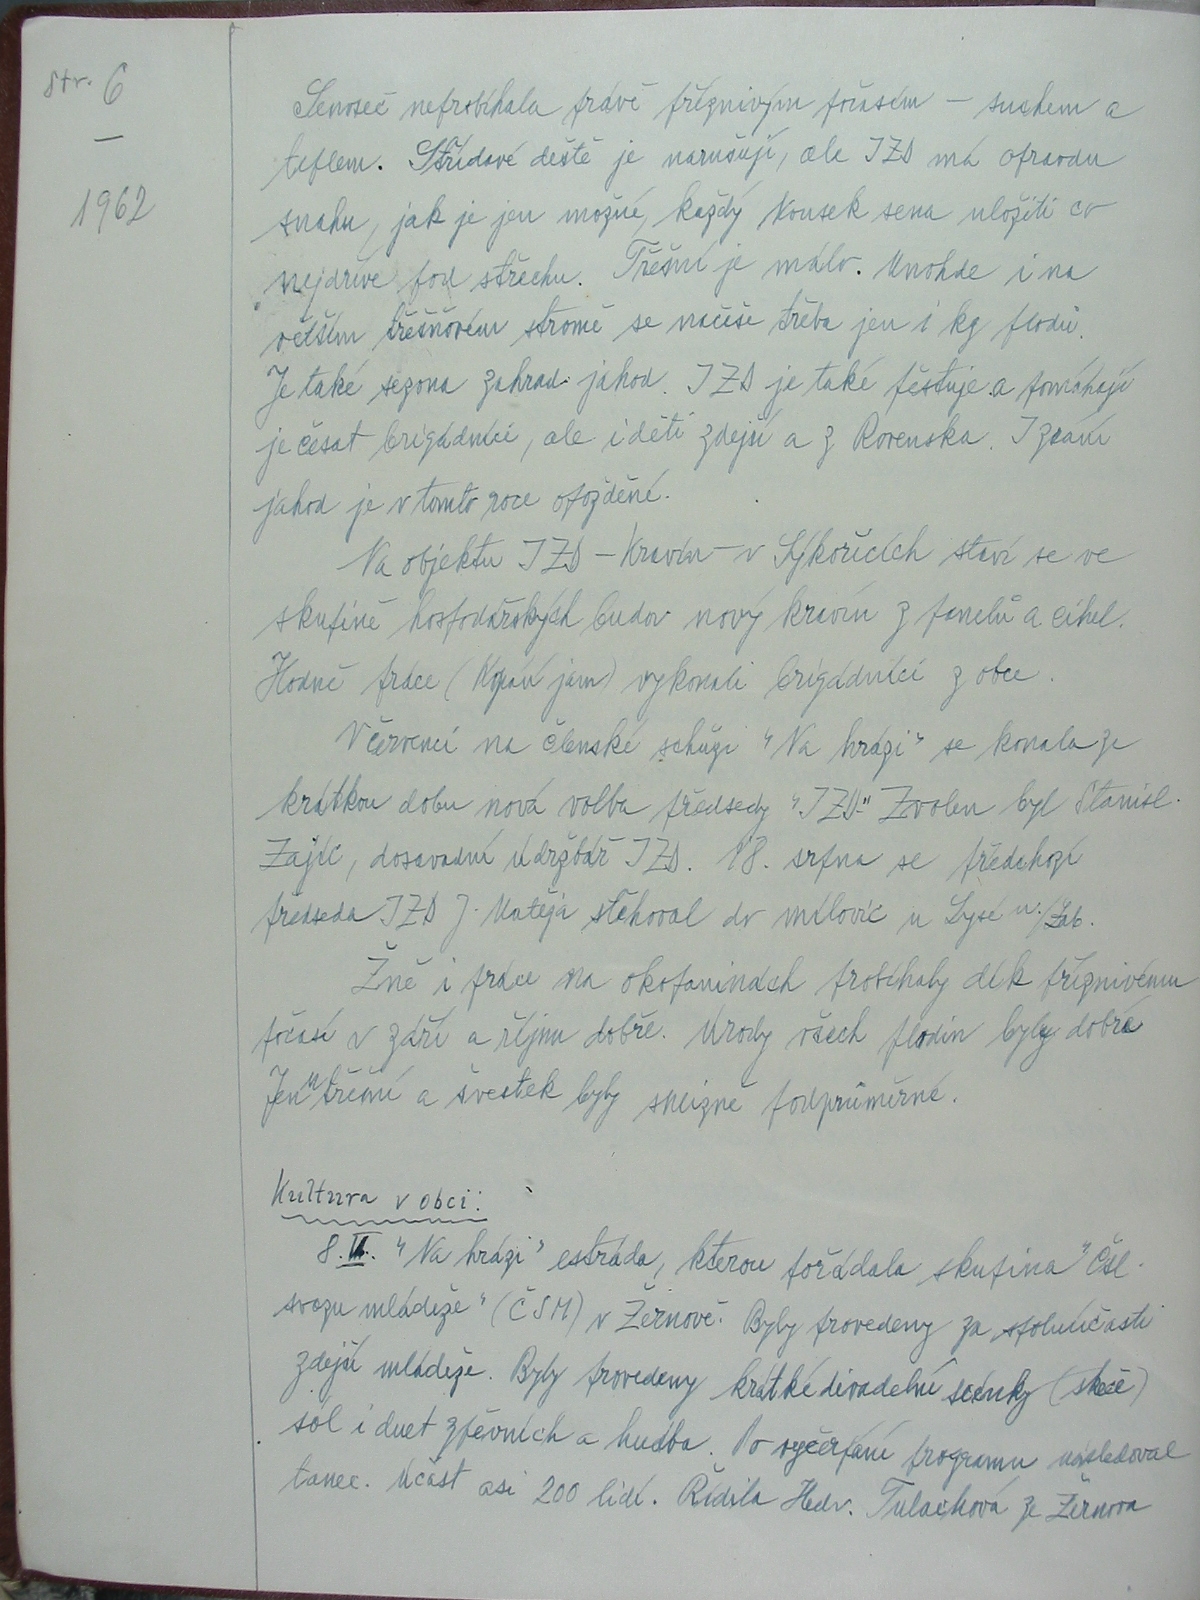 Str. 6
—
1962
Senoseč neprobíhala právě příznivým počasím – suchem a
teplem. Střídavé deště je narušují, ale JZD má opravdu
snahu, jak je jen možné, každý kousek sena uložiti co
nejdříve pod střechu. Třešní je málo. Mnohde i na
větším třešňovém stromě se načeše třeba jen 1 kg plodů.
Je také sezona zahrad. jahod. JZD je také pěstuje a pomáhají
je česat brigádníci, ale i děti zdejší a z Rovenska. I zrání
jahod je v tomto roce opožděné.
Na objektu JZD – Kravín – v Sýkořicích staví se ve
skupině hospodářských budov nový kravín z panelů a cihel.
Hodně práce (kopání jam) vykonali brigádníci z obce.
V červenci na členské schůzi "Na hrázi" se konala ze
krátkou dobu nová volba předsedy "JZD" Zvolen byl Stanisl.
Zajíc, dosavadní údržbář JZD. 18. srpna se předchozí
předseda JZD J. Matěja stěhoval do milovic u Lysé n./Lab.
Žně i práce na okopaninách probíhaly dík příznivému
počasí v září a říjnu dobře. Úrody všech plodin byly dobré
Jen u třešní a švestek byly sklizně podprůměrné.
Kultura v obci:
8. "Na hrázi" estráda, kterou pořádala skupina "Čsl.
svazu mládeže" (ČSM) v Žernově. Byly provedeny za spoluúčasti
zdejší mládeže. Byly provedeny krátké divadelní scénky (skeče)
sól i duet zpěvních a hudba. Po vyčerpání programu následoval
tanec. Účast asi 200 lidí. Řídila Hedv. Tulachová ze Žernova